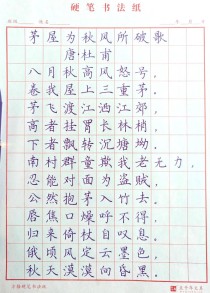 硬笔书法纸
茅屋为秋风所破歌
唐·杜甫
八月秋高风怒号，
卷我屋上三重茅。
茅飞渡江洒江郊，
高者挂罥长林梢，
下者飘转沉塘坳。
南村群童欺我老无力，
忍能对面为盗贼，
公然抱茅入竹去。
唇焦口燥呼不得，
归来倚杖自叹息。
俄顷风定云墨色，
秋天漠漠向昏黑。